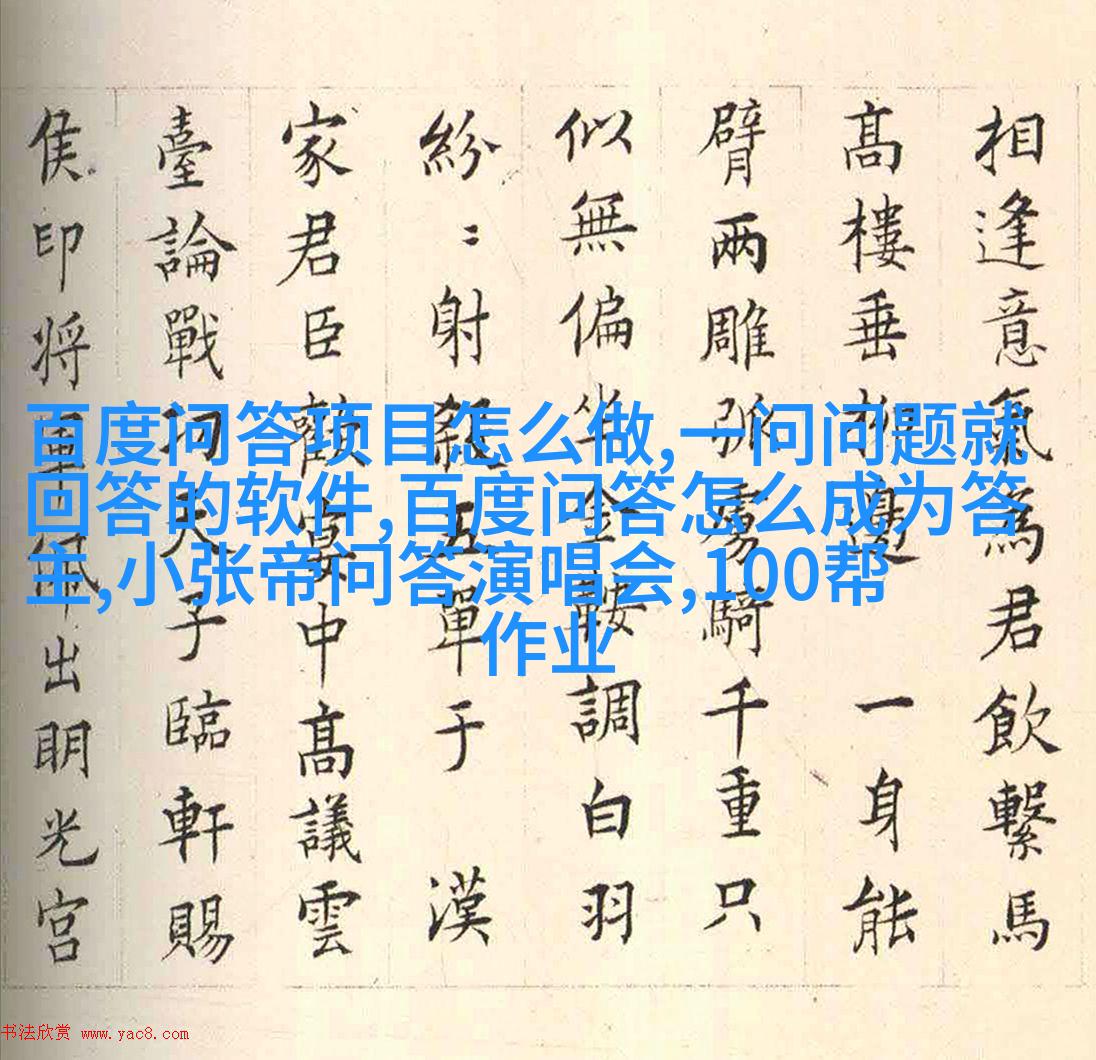 相逢意氣為君飲繫馬
高樓垂柳邊 一身能
臂兩雕弧虜騎千重只
似無偏坐金鞍調白羽
紛〻射殺五單于 漢
家君臣歡宴中高議雲
臺論戰功天子臨軒賜
侯印将軍佩出明光宮
百度问答项目怎么做,一问问题就
回答的软件,百度问答怎么成为答
主,小张帝问答演唱会,100帮
作业
书法欣赏 www.yac8.com